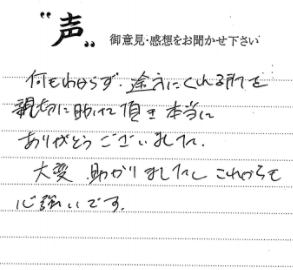 "声" 御意見・感想をお聞かせ下さい
何もわからず、途方にくれる所を
親切に助けて頂き本当に
ありがとうございました。
大変 助かりましたし これからも
心強いです。